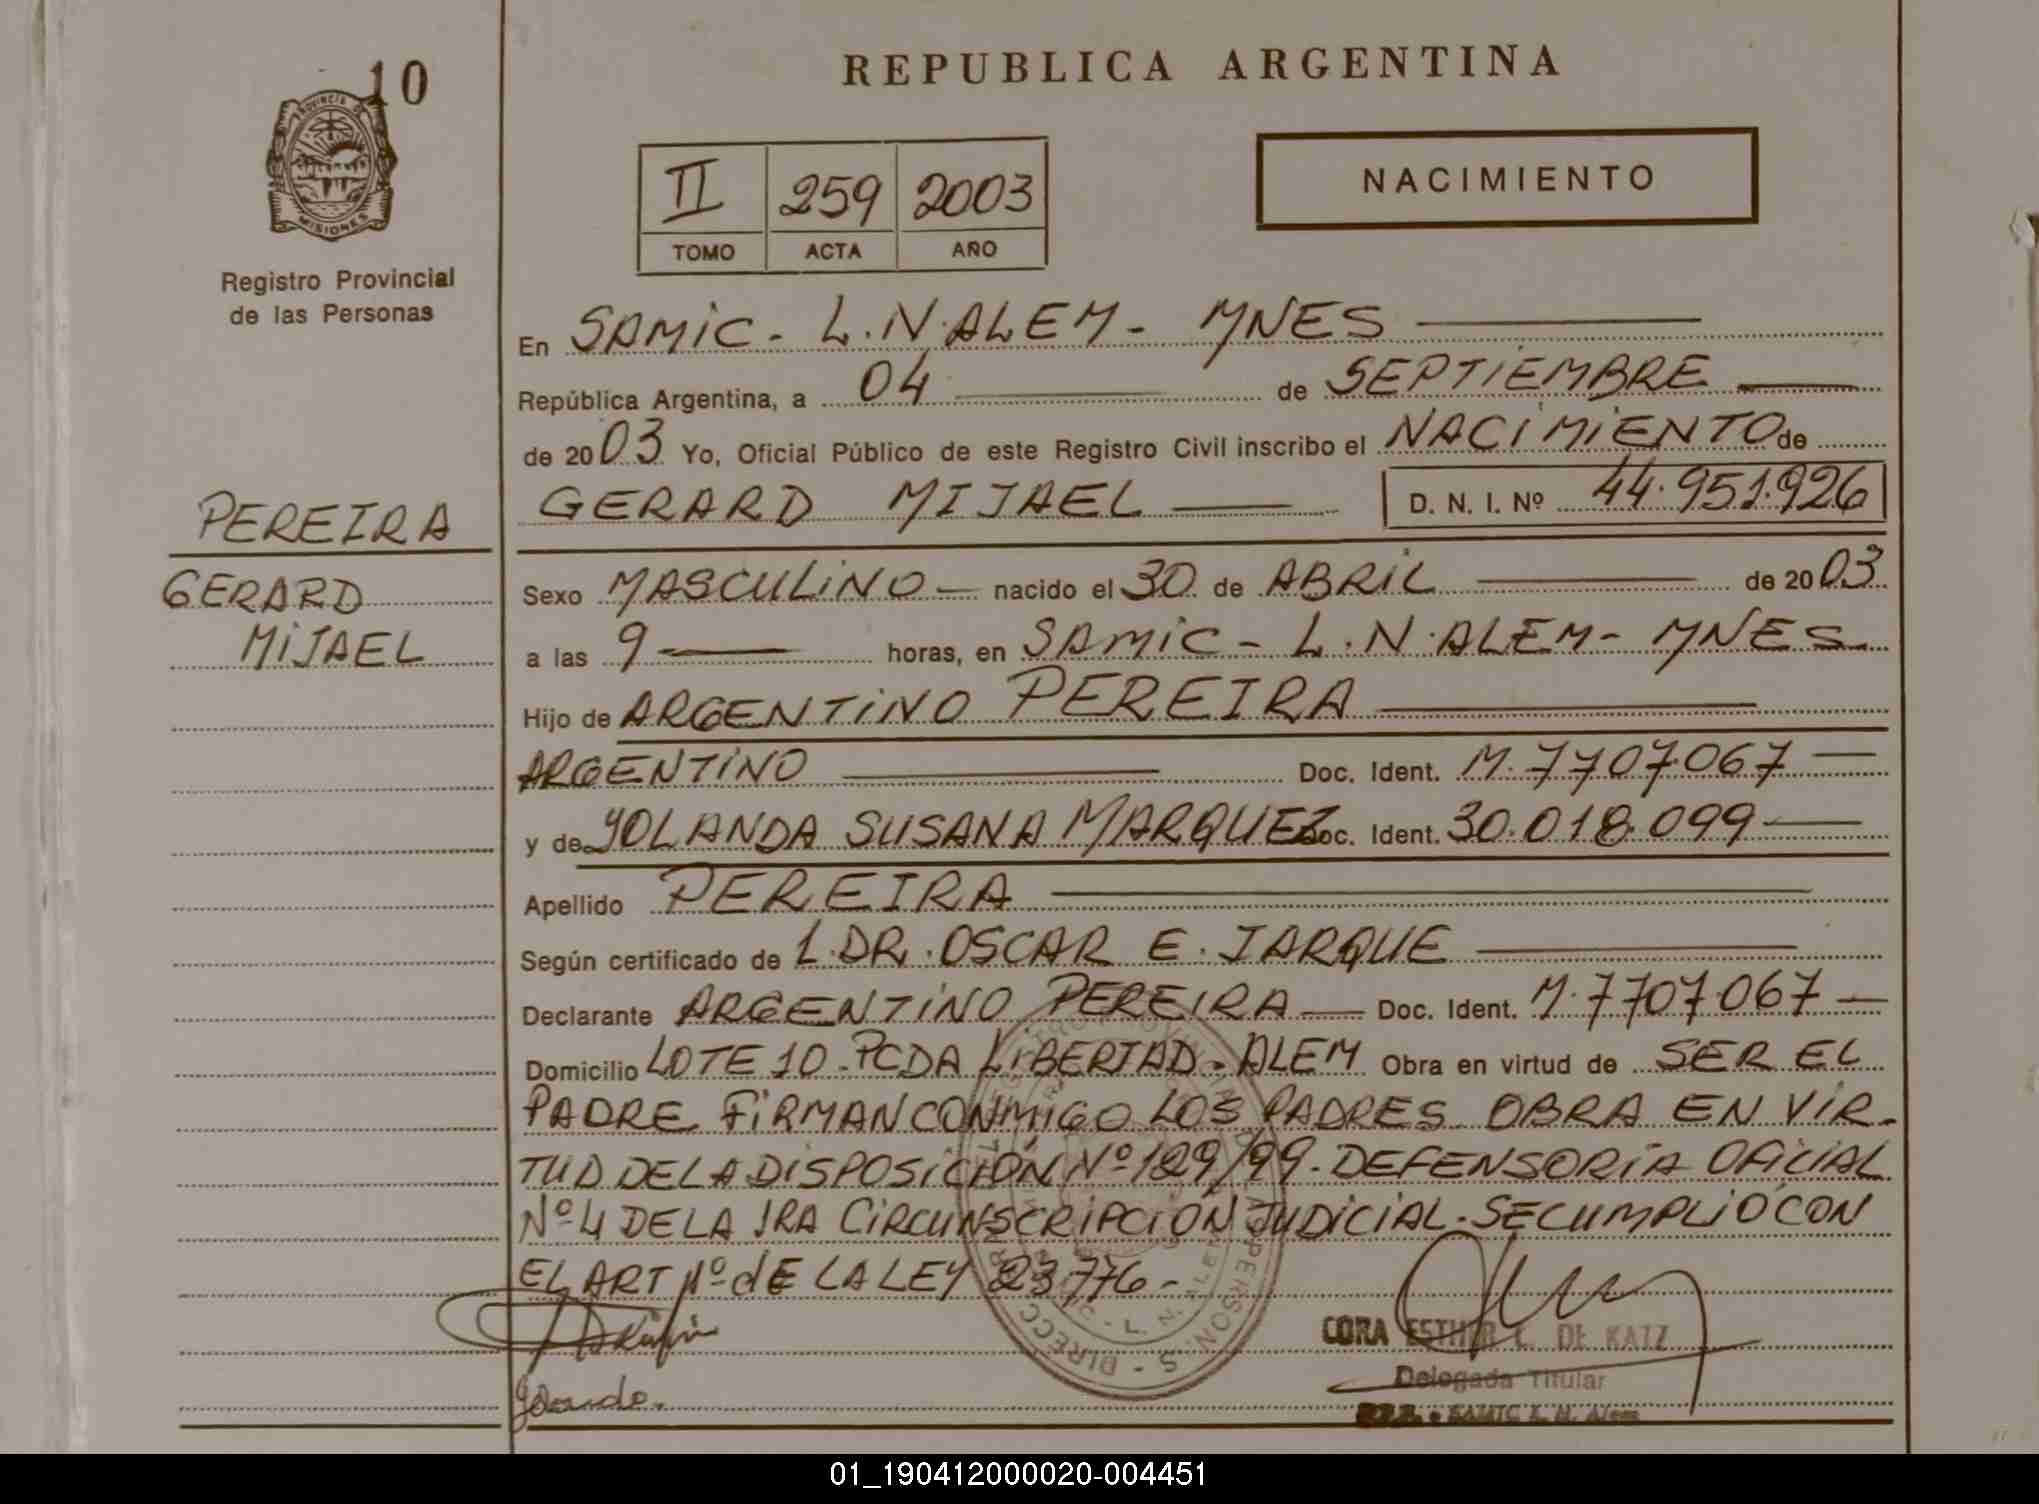 REPUBLICA ARGENTINA
10
PROVINCIA DE
MISIONES
Registro Provincial
de las Personas
II 259 2003
TOMO ACTA AÑO
NACIMIENTO
En SAMIC - L.N.ALEM - MNES
República Argentina, a 04 de SEPTIEMBRE
de 2003 Yo, Oficial Público de este Registro Civil inscribo el NACIMIENTO de
GERARD MIJAEL D. N. I. Nº 44.951.926
PEREIRA
GERARD
MIJAEL
Sexo MASCULINO nacido el 30 de ABRIL de 2003
a las 9 horas, en SAMIC - L.N.ALEM - MNES
Hijo de ARGENTINO PEREIRA
ARGENTINO Doc. Ident. M.7707067
y de YOLANDA SUSANA MARQUEZ Doc. Ident. 30.018.099
Apellido PEREIRA
Según certificado de L.DR.OSCAR E. JARQUE
Declarante ARGENTINO PEREIRA Doc. Ident. M.7707067
Domicilio LOTE 10 - PCDA LIBERTAD - ALEM Obra en virtud de SER EL
PADRE FIRMAN CONMIGO LOS PADRES OBRA EN VIR-
TUD DE LA DISPOSICIÓN Nº 189/99. DEFENSORÍA OFICIAL
Nº 4 DE LA 1RA CIRCUNSCRIPCIÓN JUDICIAL. SE CUMPLIÓ CON
EL ART 1º de LA LEY 23776 -
CORA ESTHER L. DE KATZ
Delegada Titular
SAMIC L. N. Alem
01_190412000020-004451